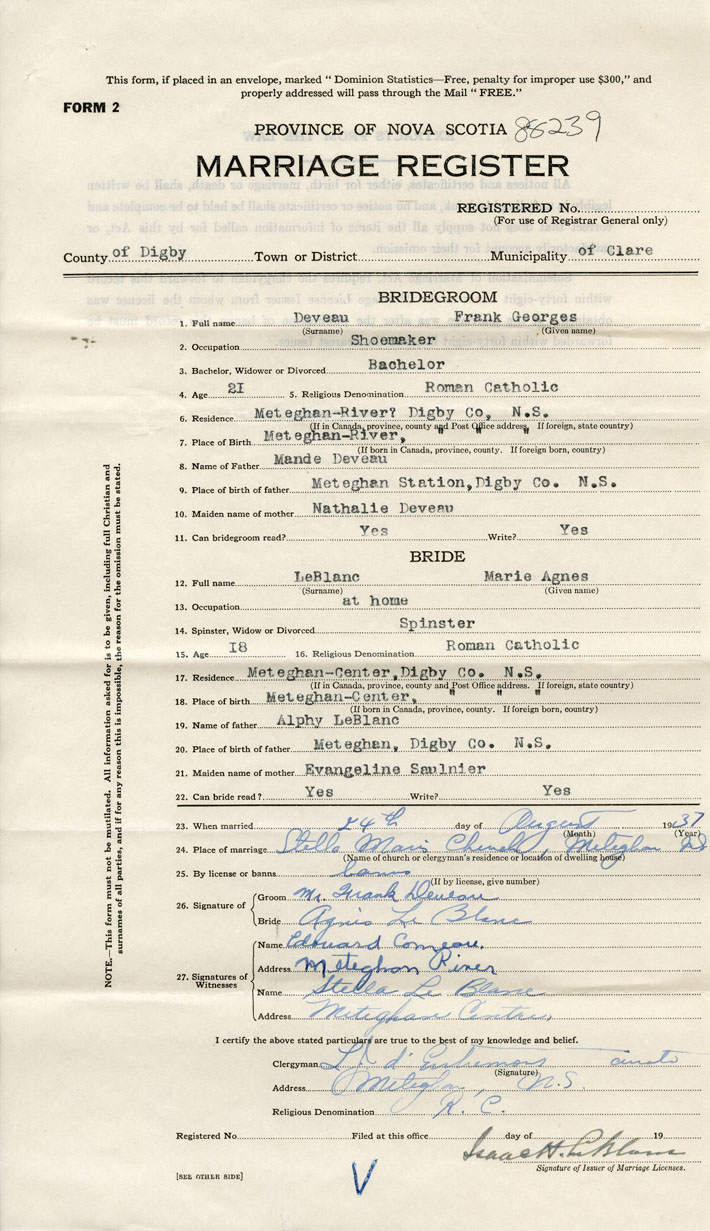 This form, if placed in an envelope, marked “ Dominion Statistics—Free, penalty for improper use $300,” and
properly addressed will pass through the Mail “ FREE.”
FORM 2
PROVINCE OF NOVA SCOTIA 88239
MARRIAGE REGISTER
REGISTERED No.
(For use of Registrar General only)
County of Digby Town or District Municipality of Clare
BRIDEGROOM
1. Full name Deveau Frank Georges
(Surname) (Given name)
2. Occupation Shoemaker
3. Bachelor, Widower or Divorced Bachelor
4. Age 2I 5. Religious Denomination Roman Catholic
6. Residence Meteghan-River? Digby Co, N.S.
(If in Canada, province, county and Post Office address. If foreign, state country)
7. Place of Birth Meteghan-River, " " "
(If born in Canada, province, county. If foreign born, country)
8. Name of Father Mande Deveau
9. Place of birth of father Meteghan Station,Digby Co. N.S.
10. Maiden name of mother Nathalie Deveau
11. Can bridegroom read? Yes Write? Yes
BRIDE
12. Full name LeBlanc Marie Agnes
(Surname) (Given name)
13. Occupation at home
14. Spinster, Widow or Divorced Spinster
15. Age I8 16. Religious Denomination Roman Catholic
17. Residence Meteghan-Center,Digby Co. N.S.
(If in Canada, province, county and Post Office address. If foreign, state country)
18. Place of birth Meteghan-Center, " " "
(If born in Canada, province, county. If foreign born, country)
19. Name of father Alphy LeBlanc
20. Place of birth of father Meteghan, Digby Co. N.S.
21. Maiden name of mother Evangeline Saulnier
22. Can bride read? Yes Write? Yes
23. When married 24th day of August 1937
(Month) (Year)
24. Place of marriage Stella Maris Church, Meteghan N.S.
(Name of church or clergyman's residence or location of dwelling house)
25. By license or banns banns
(If by license, give number)
26. Signature of Groom Mr. Frank Deveau
Bride Agnes Le Blanc
27. Signatures of Witnesses Name Edouard Comeau.
Address Meteghan River
Name Stella Le Blanc
Address Meteghan Centre,
I certify the above stated particulars are true to the best of my knowledge and belief.
Clergyman d'Entremont curate
(Signature)
Address Meteghan, N.S.
Religious Denomination R. C.
Registered No. Filed at this office day of 19
Isaac H. LeBlanc
Signature of Issuer of Marriage Licenses.
[SEE OTHER SIDE]
V
NOTE.—This form must not be mutilated. All information asked for is to be given, including full Christian and
surnames of all parties, and if for any reason this is impossible, the reason for the omission must be stated.